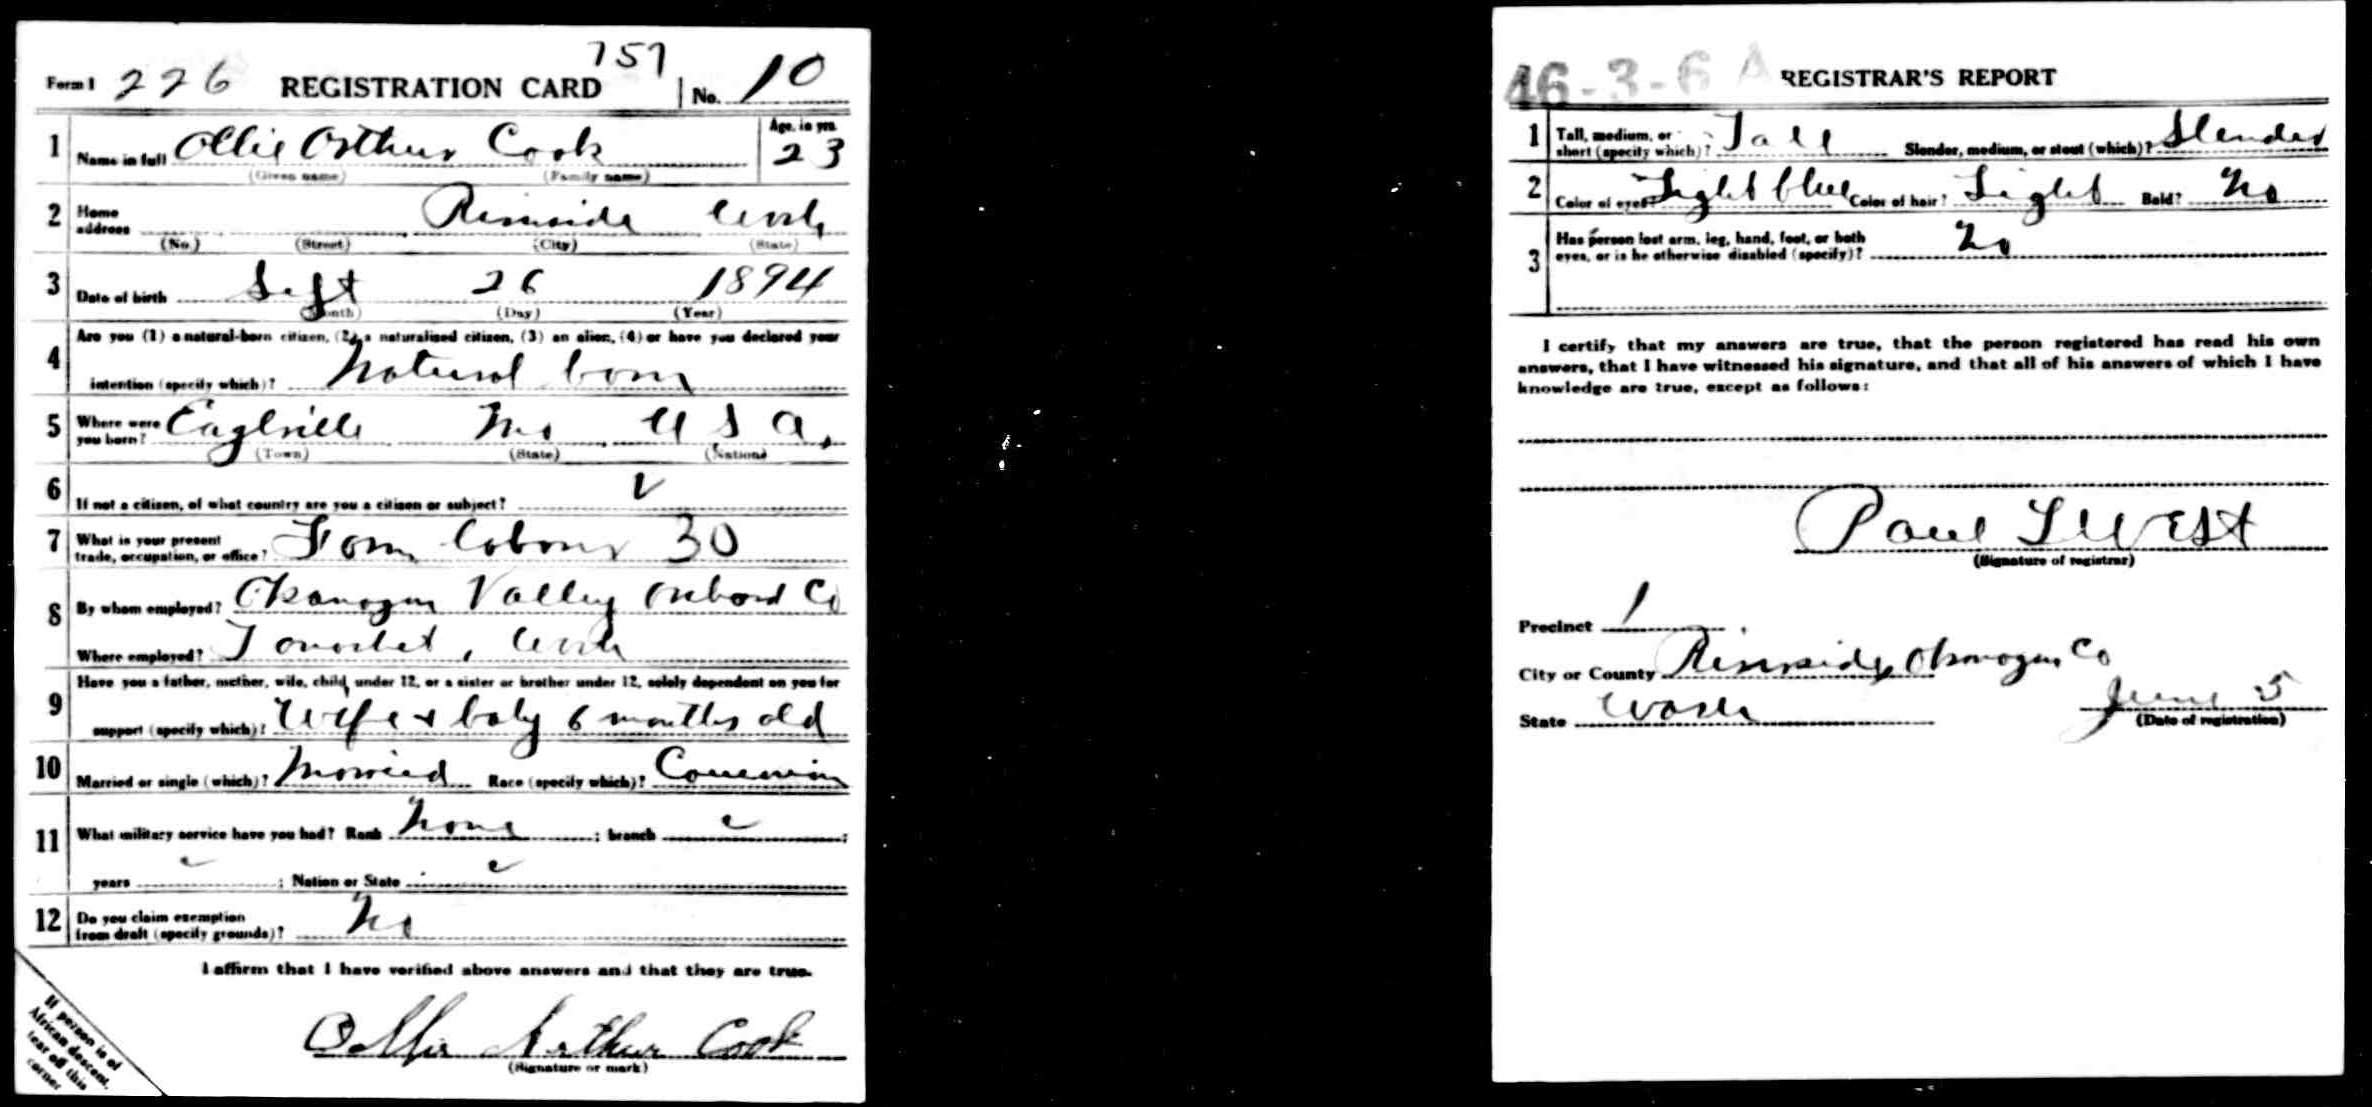 Form 1 226 REGISTRATION CARD 757 No. 10
1 Name in full Ollie Arthur Cook Age, in yrs. 23
(Given name) (Family name)
2 Home address Riverside Wash
(No.) (Street) (City) (State)
3 Date of birth Sept 26 1894
(Month) (Day) (Year)
Are you (1) a natural-born citizen, (2) a naturalized citizen, (3) an alien, (4) or have you declared your
4 intention (specify which)? Natural born
5 Where were you born? Eaglville Mo U S A.
(Town) (State) (Nation)
6 If not a citizen, of what country are you a citizen or subject?
7 What is your present trade, occupation, or office? Farm Laborer 30
8 By whom employed? Okanogan Valley Orchard Co
Where employed? Tonasket, Wash
Have you a father, mother, wife, child under 12, or a sister or brother under 12, solely dependent on you for
9 support (specify which)? Wife & baby 6 months old
10 Married or single (which)? Married Race (specify which)?
11 What military service have you had? Rank None ; branch ;
years ; Nation or State
12 Do you claim exemption from draft (specify grounds)? No
I affirm that I have verified above answers and that they are true.
Ollie Arthur Cook
(Signature or mark)
If person is of
African descent,
tear off this
corner
46-3-6 A REGISTRAR'S REPORT
1 Tall, medium, or short (specify which)? Tall Slender, medium, or stout (which)? Slender
2 Color of eyes? Light blue Color of hair? Light Bald? No
3 Has person lost arm, leg, hand, foot, or both eyes, or is he otherwise disabled (specify)? No
I certify that my answers are true, that the person registered has read his own
answers, that I have witnessed his signature, and that all of his answers of which I have
knowledge are true, except as follows:
Paul L West
(Signature of registrar)
Precinct 1
City or County Riverside, Okanogan Co
State Wash June 5
(Date of registration)